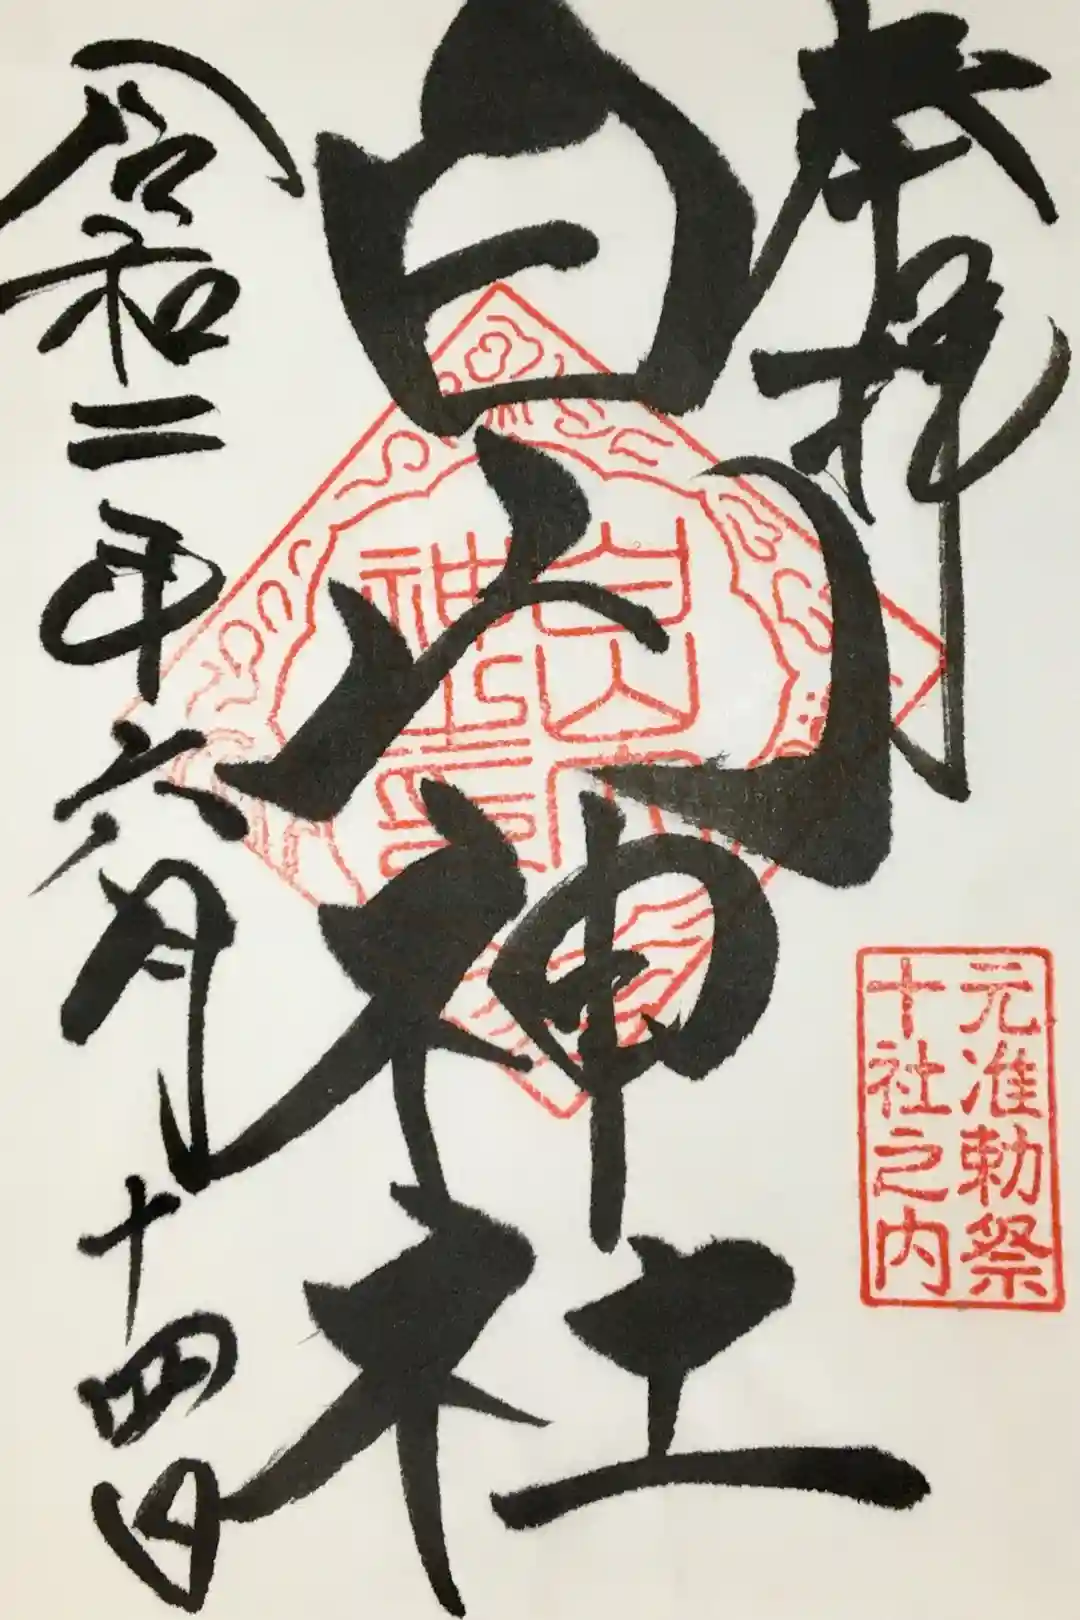 奉拝
元准勅祭
十社之内
白山神社
白山
神社
令和二年六月十四日